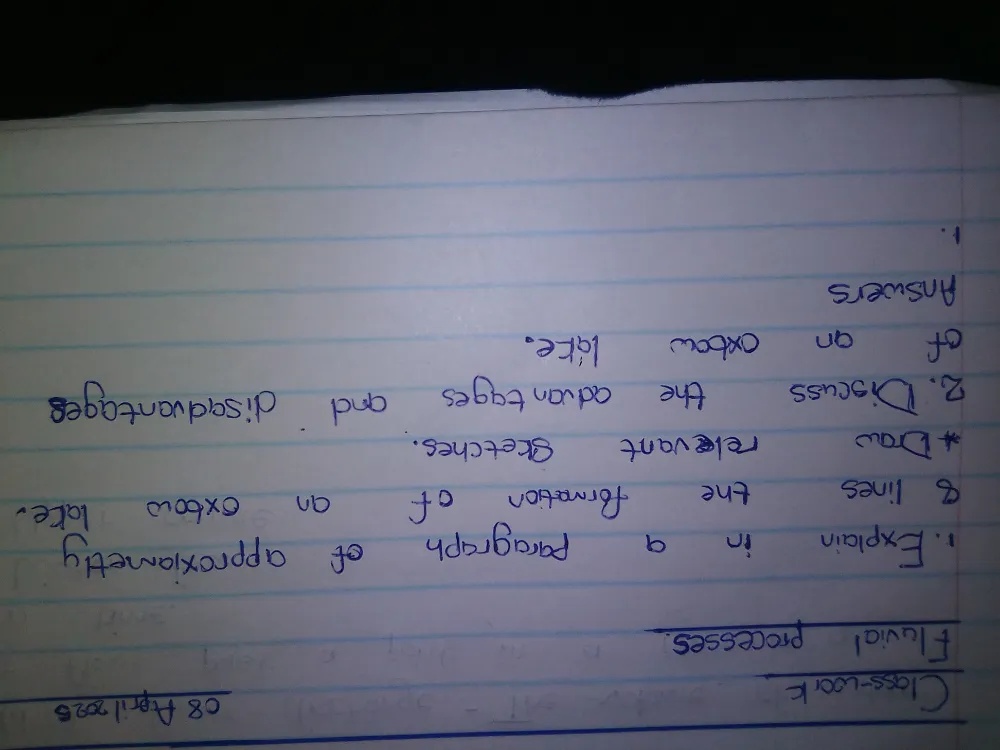 Class-work 08 April 2025
Fluvial processes.
1. Explain in a paragraph of approxiametly
8 lines the formation of an oxbow lake.
* Draw relevant sketches.
2. Discuss the advantages and disadvantages
of an oxbow lake.
Answers
1.